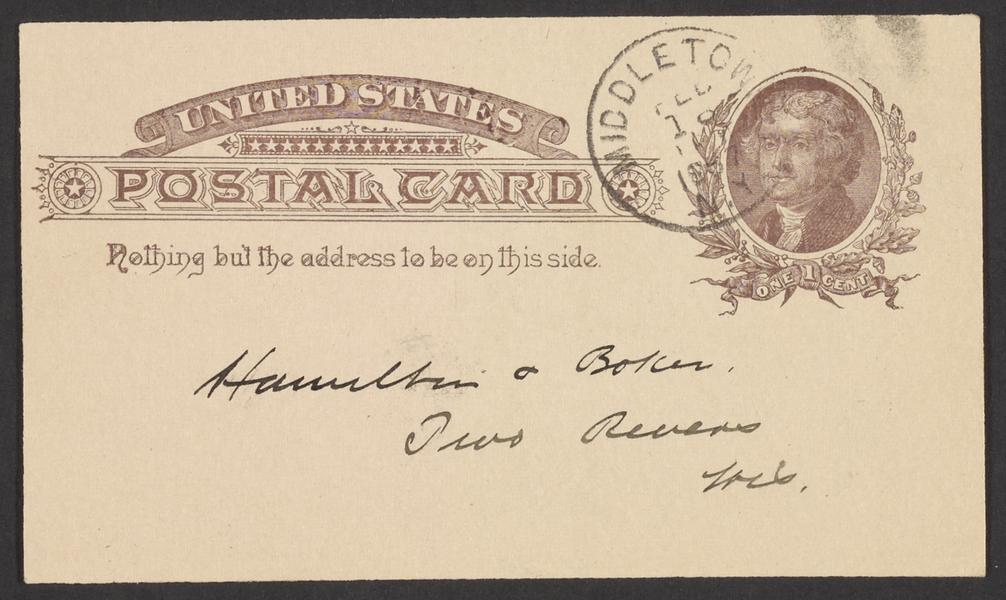 UNITED STATES
POSTAL CARD
Nothing but the address to be on this side.
MIDDLETOWN
N.Y.
ONE 1 CENT
Hamilton & Boker.
Two Revers
Wis.